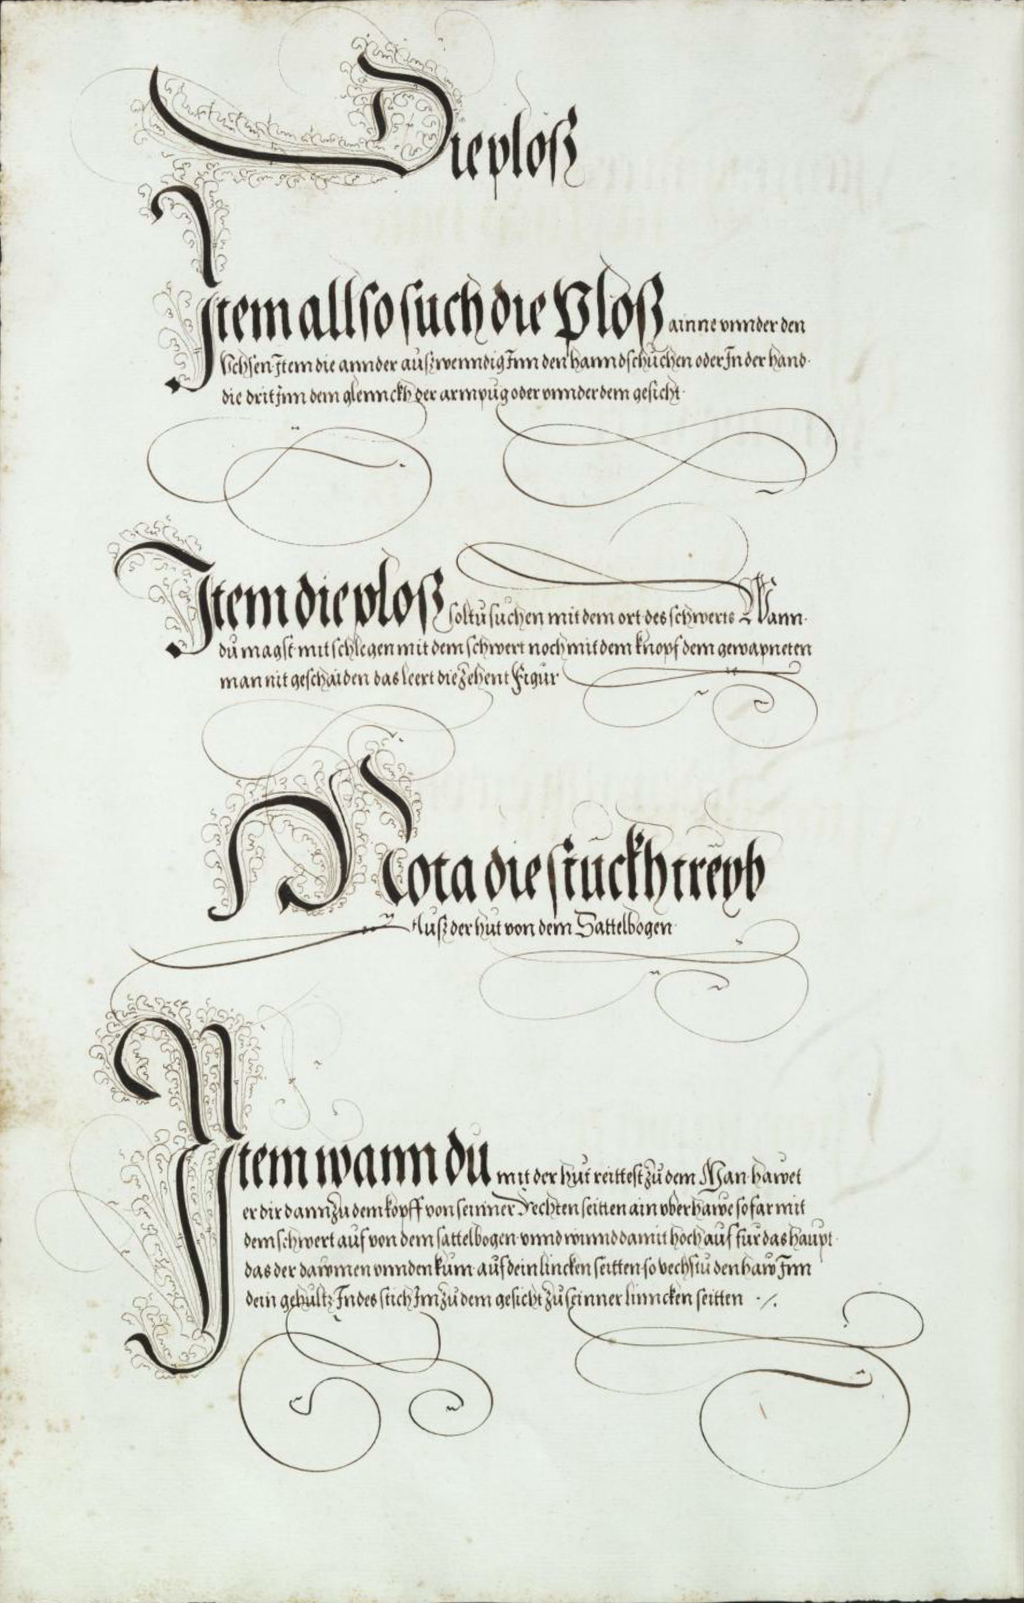 Die ploß
Item allso such die Ploß ainne vnnder den
Vchsen Item die annder außwenndig Inn den hanndschuchen oder In der hand
die drit Inn dem glennckh der armpug oder vnnder dem gesicht
Item die ploß soltu suchen mit dem ort des schwerts Wann
du magst mit schlegen mit dem schwert noch mit dem knopf dem gewapneten
man nit geschaiden das leert die Zehent Figur
Nota die stuckh treyb
Auß der hut von dem Sattelbogen
Item wann du mit der hut reittest zu dem Man hawet
er dir dann zu dem kopff von seinner Rechten seitten ain vberhawe so far mit
dem schwert auf von dem sattelbogen vnnd winnd damit hoch auf fur das haupt
das der dawmen vnnden kum auf dein lincken seitten so vechstu den haw Inn
dein gehultz Indes stich Im zu dem gesicht zu seinner linncken seitten ·/.